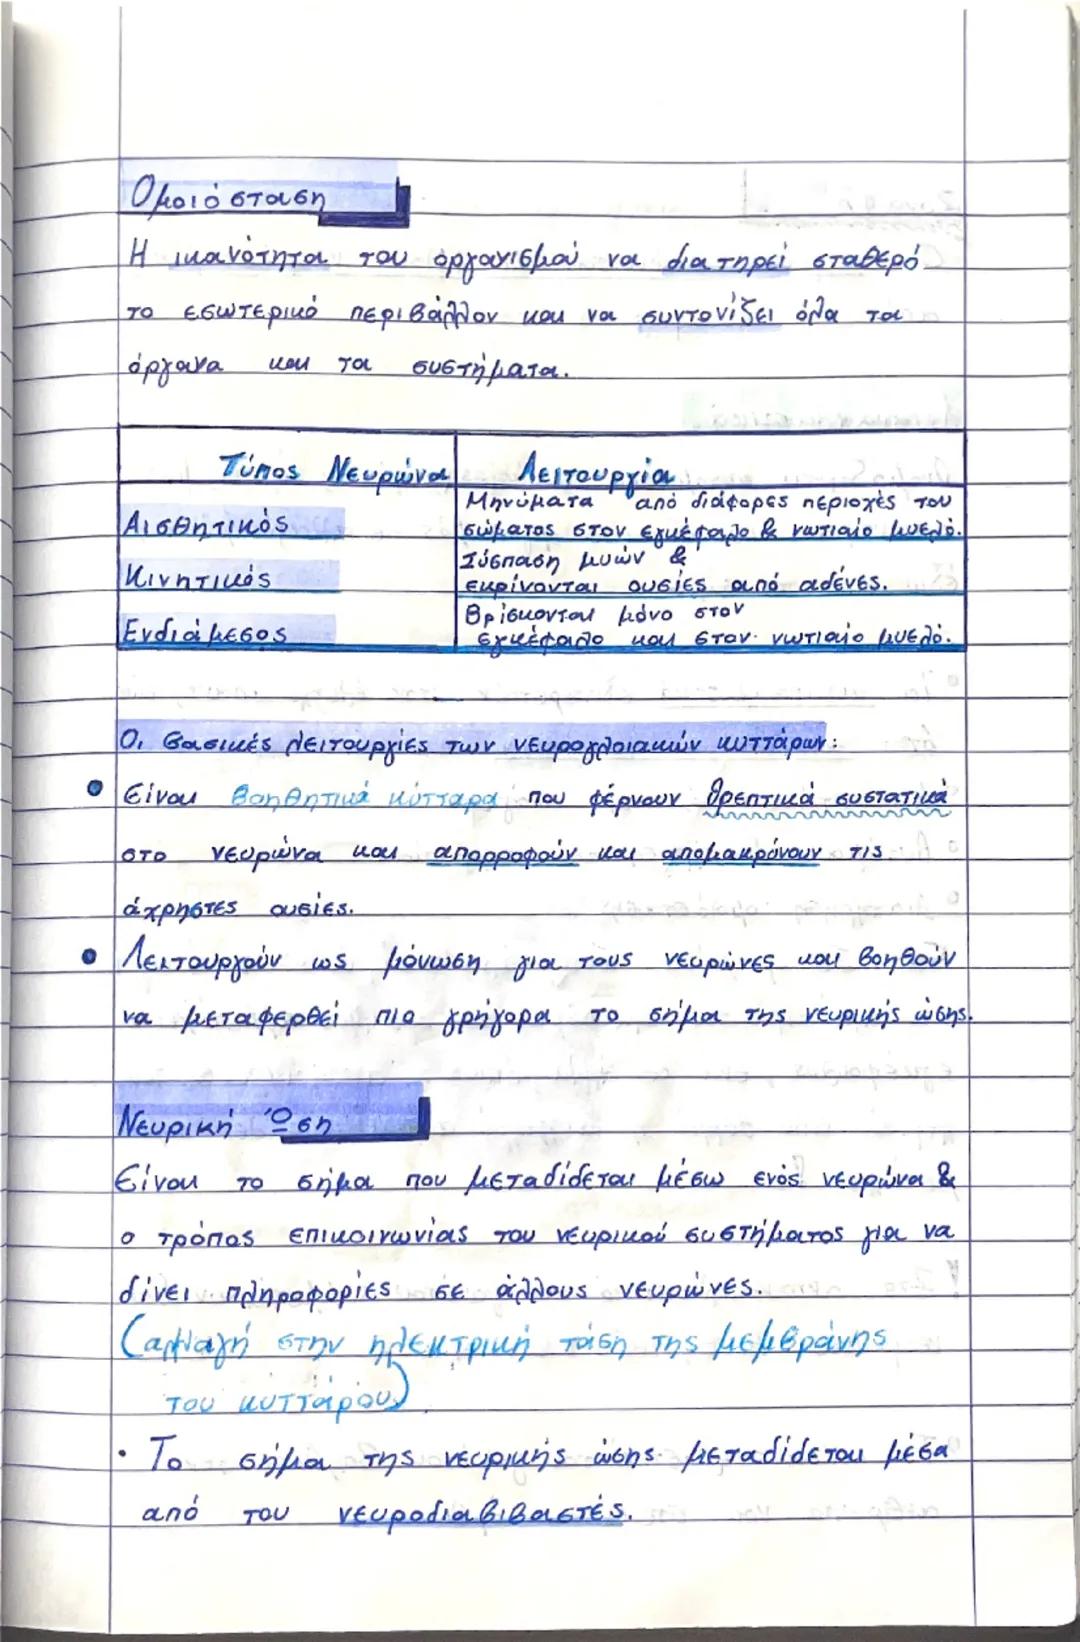 Ομοιόσταση
Η ικανότητα του οργανισμού να διατηρεί σταθερό
το εσωτερικό περιβάλλον και να συντονίζει όλα τα
όργανα και τα συστήματα.
Τύπος Νευρώνα Λειτουργία
Αισθητικός Μηνύματα από διάφορες περιοχές του
σώματος στον εγκέφαλο & νωτιαίο μυελό.
Κινητικός Σύσπαση μυών &
εκρίνονται ουσίες από αδένες.
Ενδιάμεσος Βρίσκονται μόνο στον
εγκέφαλο και στον νωτιαίο μυελό.
Οι βασικές λειτουργίες των νευρογλοιακών κυττάρων:
• Είναι βοηθητικά κύτταρα που φέρνουν θρεπτικά συστατικά
στο νευρώνα και απορροφούν και απομακρύνουν τις
άχρηστες ουσίες.
• Λειτουργούν ως μόνωση για τους νευρώνες και βοηθούν
να μεταφερθεί πιο γρήγορα το σήμα της νευρικής ώσης.
Νευρική Ώση
Είναι το σήμα που μεταδίδεται μέσω ενός νευρώνα &
ο τρόπος επικοινωνίας του νευρικού συστήματος για να
δίνει πληροφορίες σε άλλους νευρώνες.
(αλλαγή στην ηλεκτρική τάση της μεμβράνης
του κυττάρου)
• Το σήμα της νευρικής ώσης μεταδίδεται μέσα
από του νευροδιαβιβαστές.